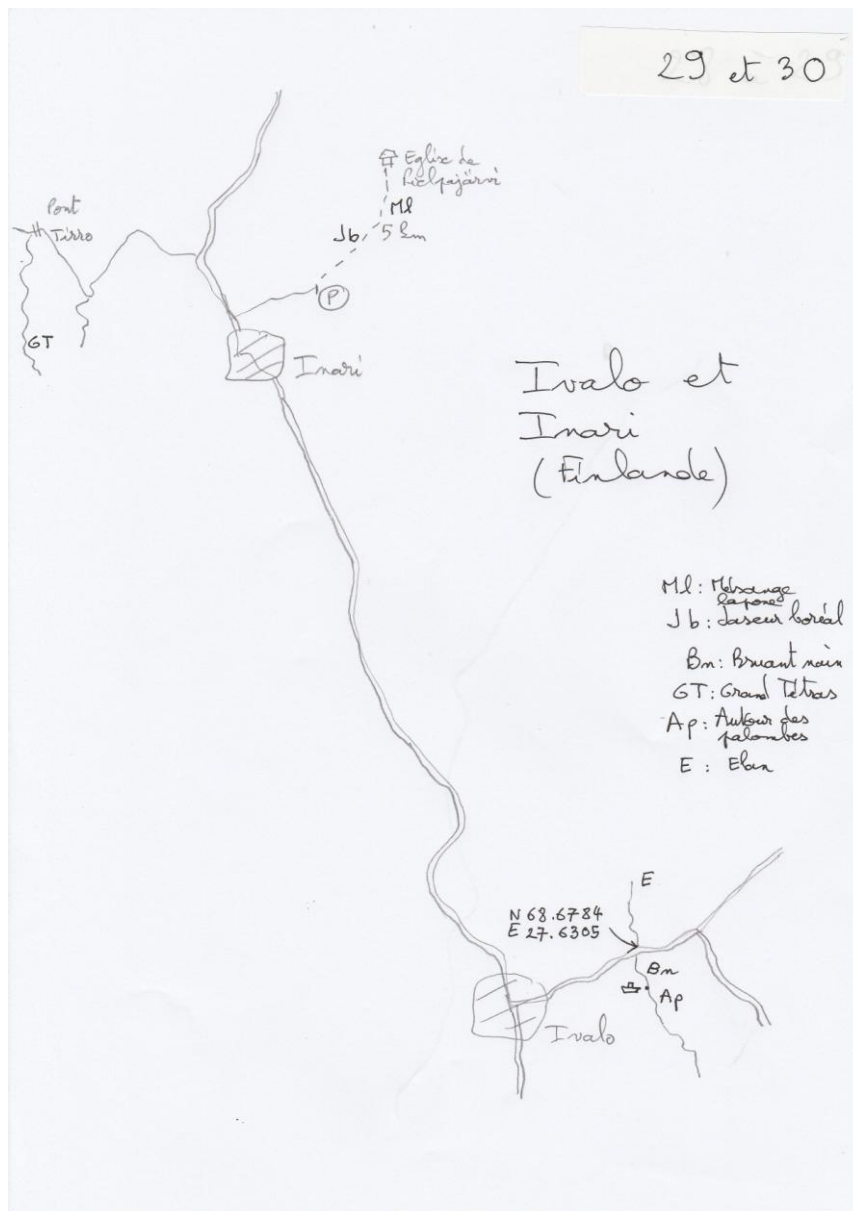 29 et 30
Eglise de
Pielpajärvi
Ml
Jb
5 km
Pont
Tirro
P
GT
Inari
Ivalo et
Inari
(Finlande)
Ml: Mésange
lapone
Jb: Jaseur boréal
Bn: Bruant nain
GT: Grand Tétras
Ap: Autour des
palombes
E : Elan
E
N 68.6784
E 27.6305
Bn
Ap
Ivalo